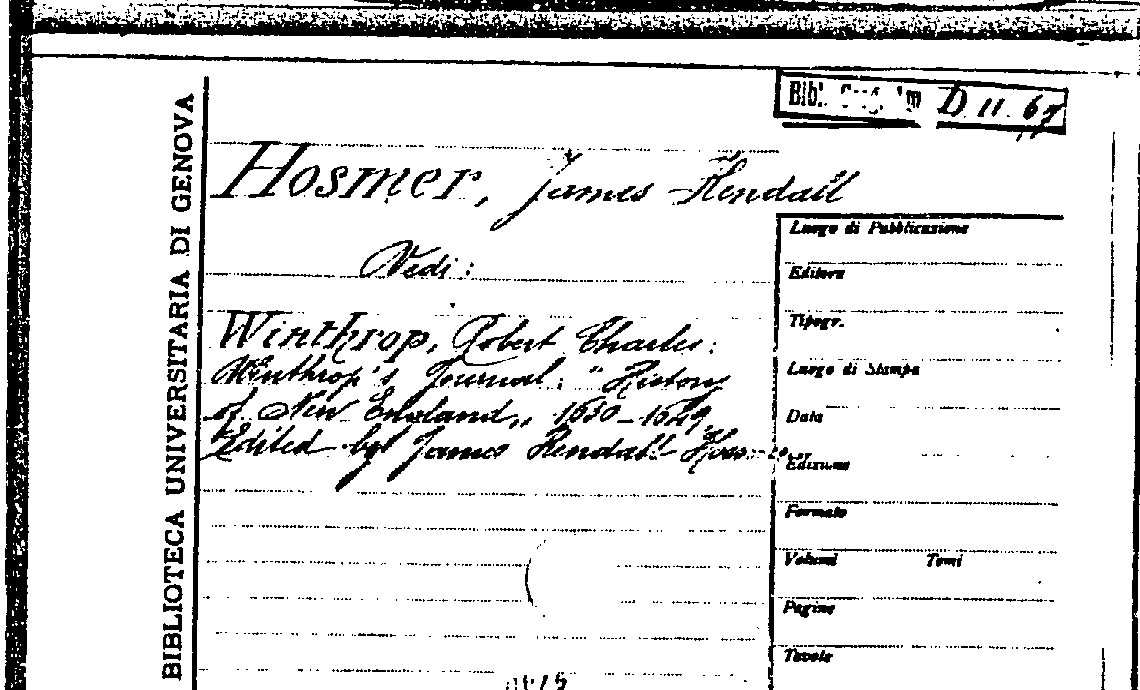 BIBLIOTECA UNIVERSITARIA DI GENOVA
Bibl. D. 11. 67
Hosmer, James Kendall
Vedi:
Winthrop, Robert Charles:
Winthrop's Journal: "History
of New England,, 1630-1649
Edited by James Kendall Hosmer
Luogo di Pubblicazione
Editore
Tipogr.
Luogo di Stampa
Data
Edizione
Formato
Volumi Tomi
Pagine
Tavole